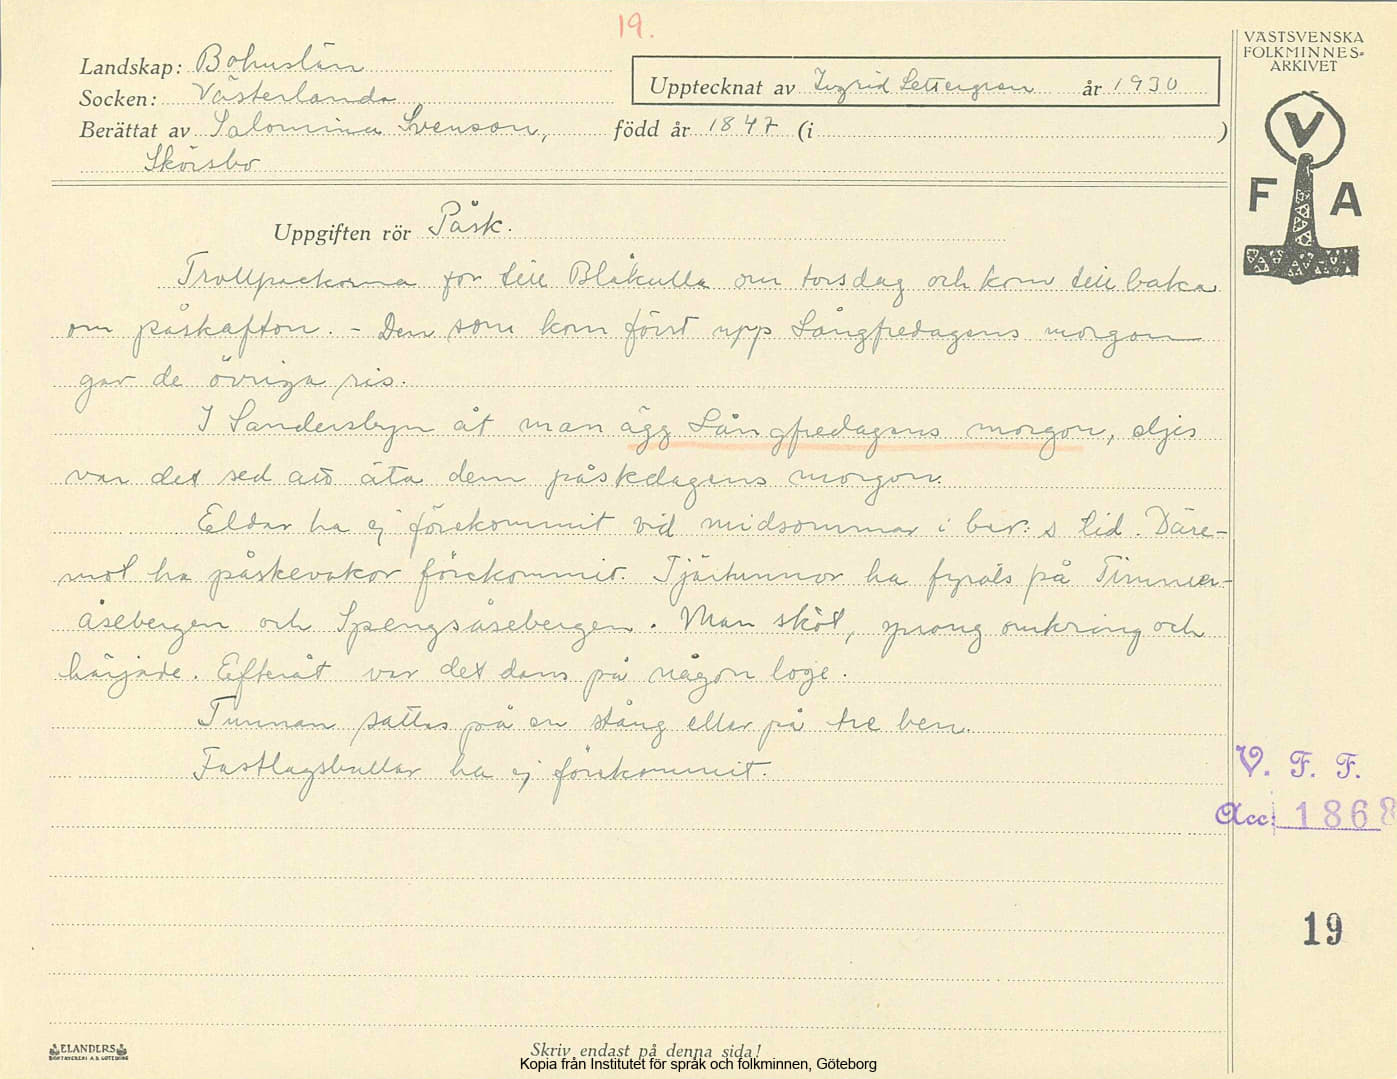 19.
VÄSTSVENSKA
FOLKMINNES-
ARKIVET
Landskap: Bohuslän
Socken: Västerlanda
Upptecknat av Ingrid Settergren år 1930
Berättat av Salomina Svenson, född år 1847 (i )
Skörsbo
V
F A
Uppgiften rör Påsk.
Trollpackorna for till Blåkulla om torsdag och kom till baka
om påskafton. - Den som kom först upp Långfredagens morgon
gav de övriga ris.
I Sandersbyn åt man ägg Långfredagens morgon, eljes
var det sed att äta dem påskdagens morgon.
Eldar ha ej förekommit vid midsommar i ber:s tid. Däre-
mot ha påskevakor förekommit. Tjärtunnor ha fyrats på Timmer-
åsebergen och Spengsåsebergen. Man sköt, sprang omkring och
härjade. Efteråt var det dans på någon loge.
Tunnan sattes på en stång eller på tre ben.
Fastlagsbullar ha ej förekommit.
V. F. F.
Acc: 1868
19
ELANDERS
BOKTRYCKERI A.B. GÖTEBORG
Skriv endast på denna sida!
Kopia från Institutet för språk och folkminnen, Göteborg